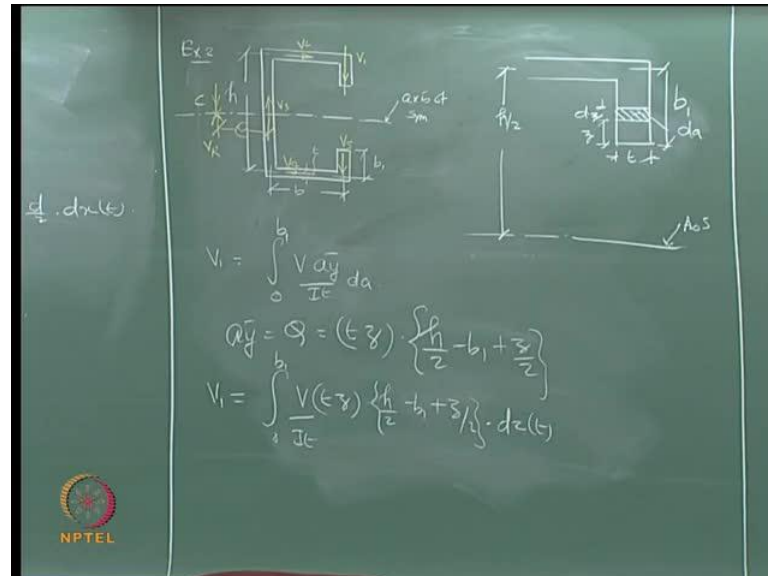 d/2 . dx(t)
Ex 2
V2
V1
C
h
V3
axis of
sym
VK
e
V2
t
V1
b1
b
h/2
dz
z
t
b1
da
AoS
V1 = ∫₀^b1 V aȳ / It da
aȳ = Q = (t z) . {h/2 - b1 + z/2}
V1 = ∫₀^b1 V/It (t z) {h/2 - b1 + z/2} . dz(t)
NPTEL